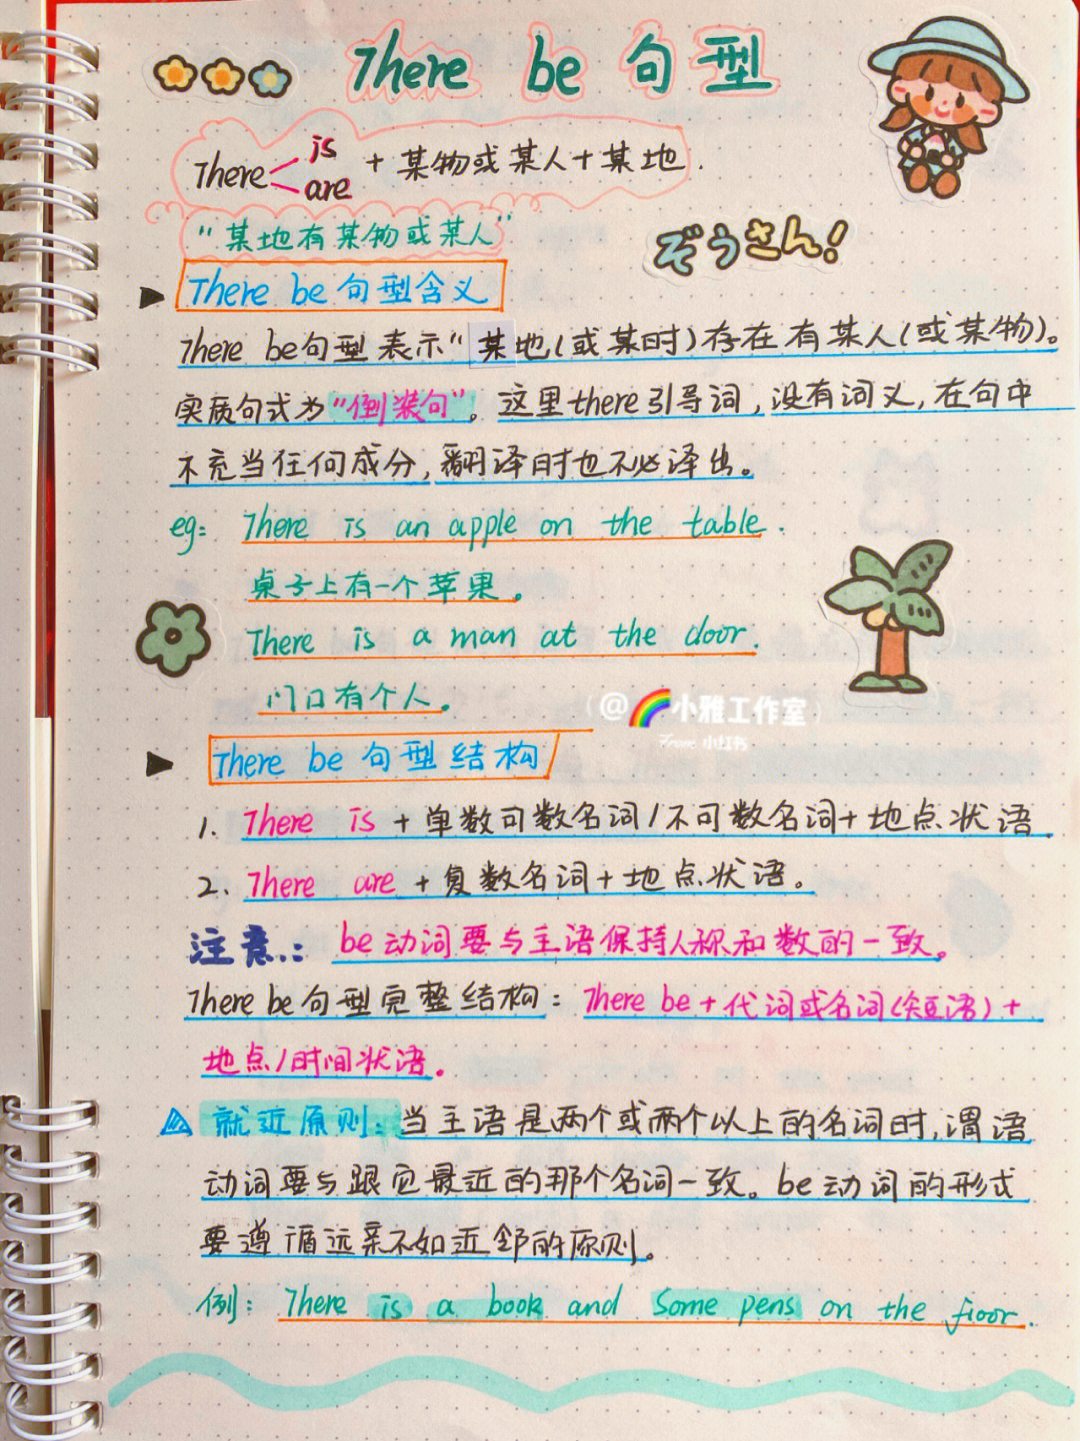 There be 句型
There is are + 某物或某人 + 某地.
"某地有某物或某人"
ぞうさん!
There be 句型含义
There be句型表示"某地(或某时)存在有某人(或某物)。
实质句式为"倒装句"。这里there引导词,没有词义,在句中
不充当任何成分,翻译时也不必译出。
eg: There is an apple on the table.
桌子上有一个苹果。
There is a man at the door.
门口有个人。
(@小雅工作室)
From 小红书
There be 句型结构
1. There is + 单数可数名词/不可数名词+地点状语.
2. There are + 复数名词+地点状语。
注意: be动词要与主语保持人称和数的一致。
There be句型完整结构: There be + 代词或名词(短语) +
地点/时间状语.
就近原则: 当主语是两个或两个以上的名词时,谓语
动词要与跟它最近的那个名词一致。be动词的形式
要遵循远亲不如近邻的原则。
例: There is a book and some pens on the floor.